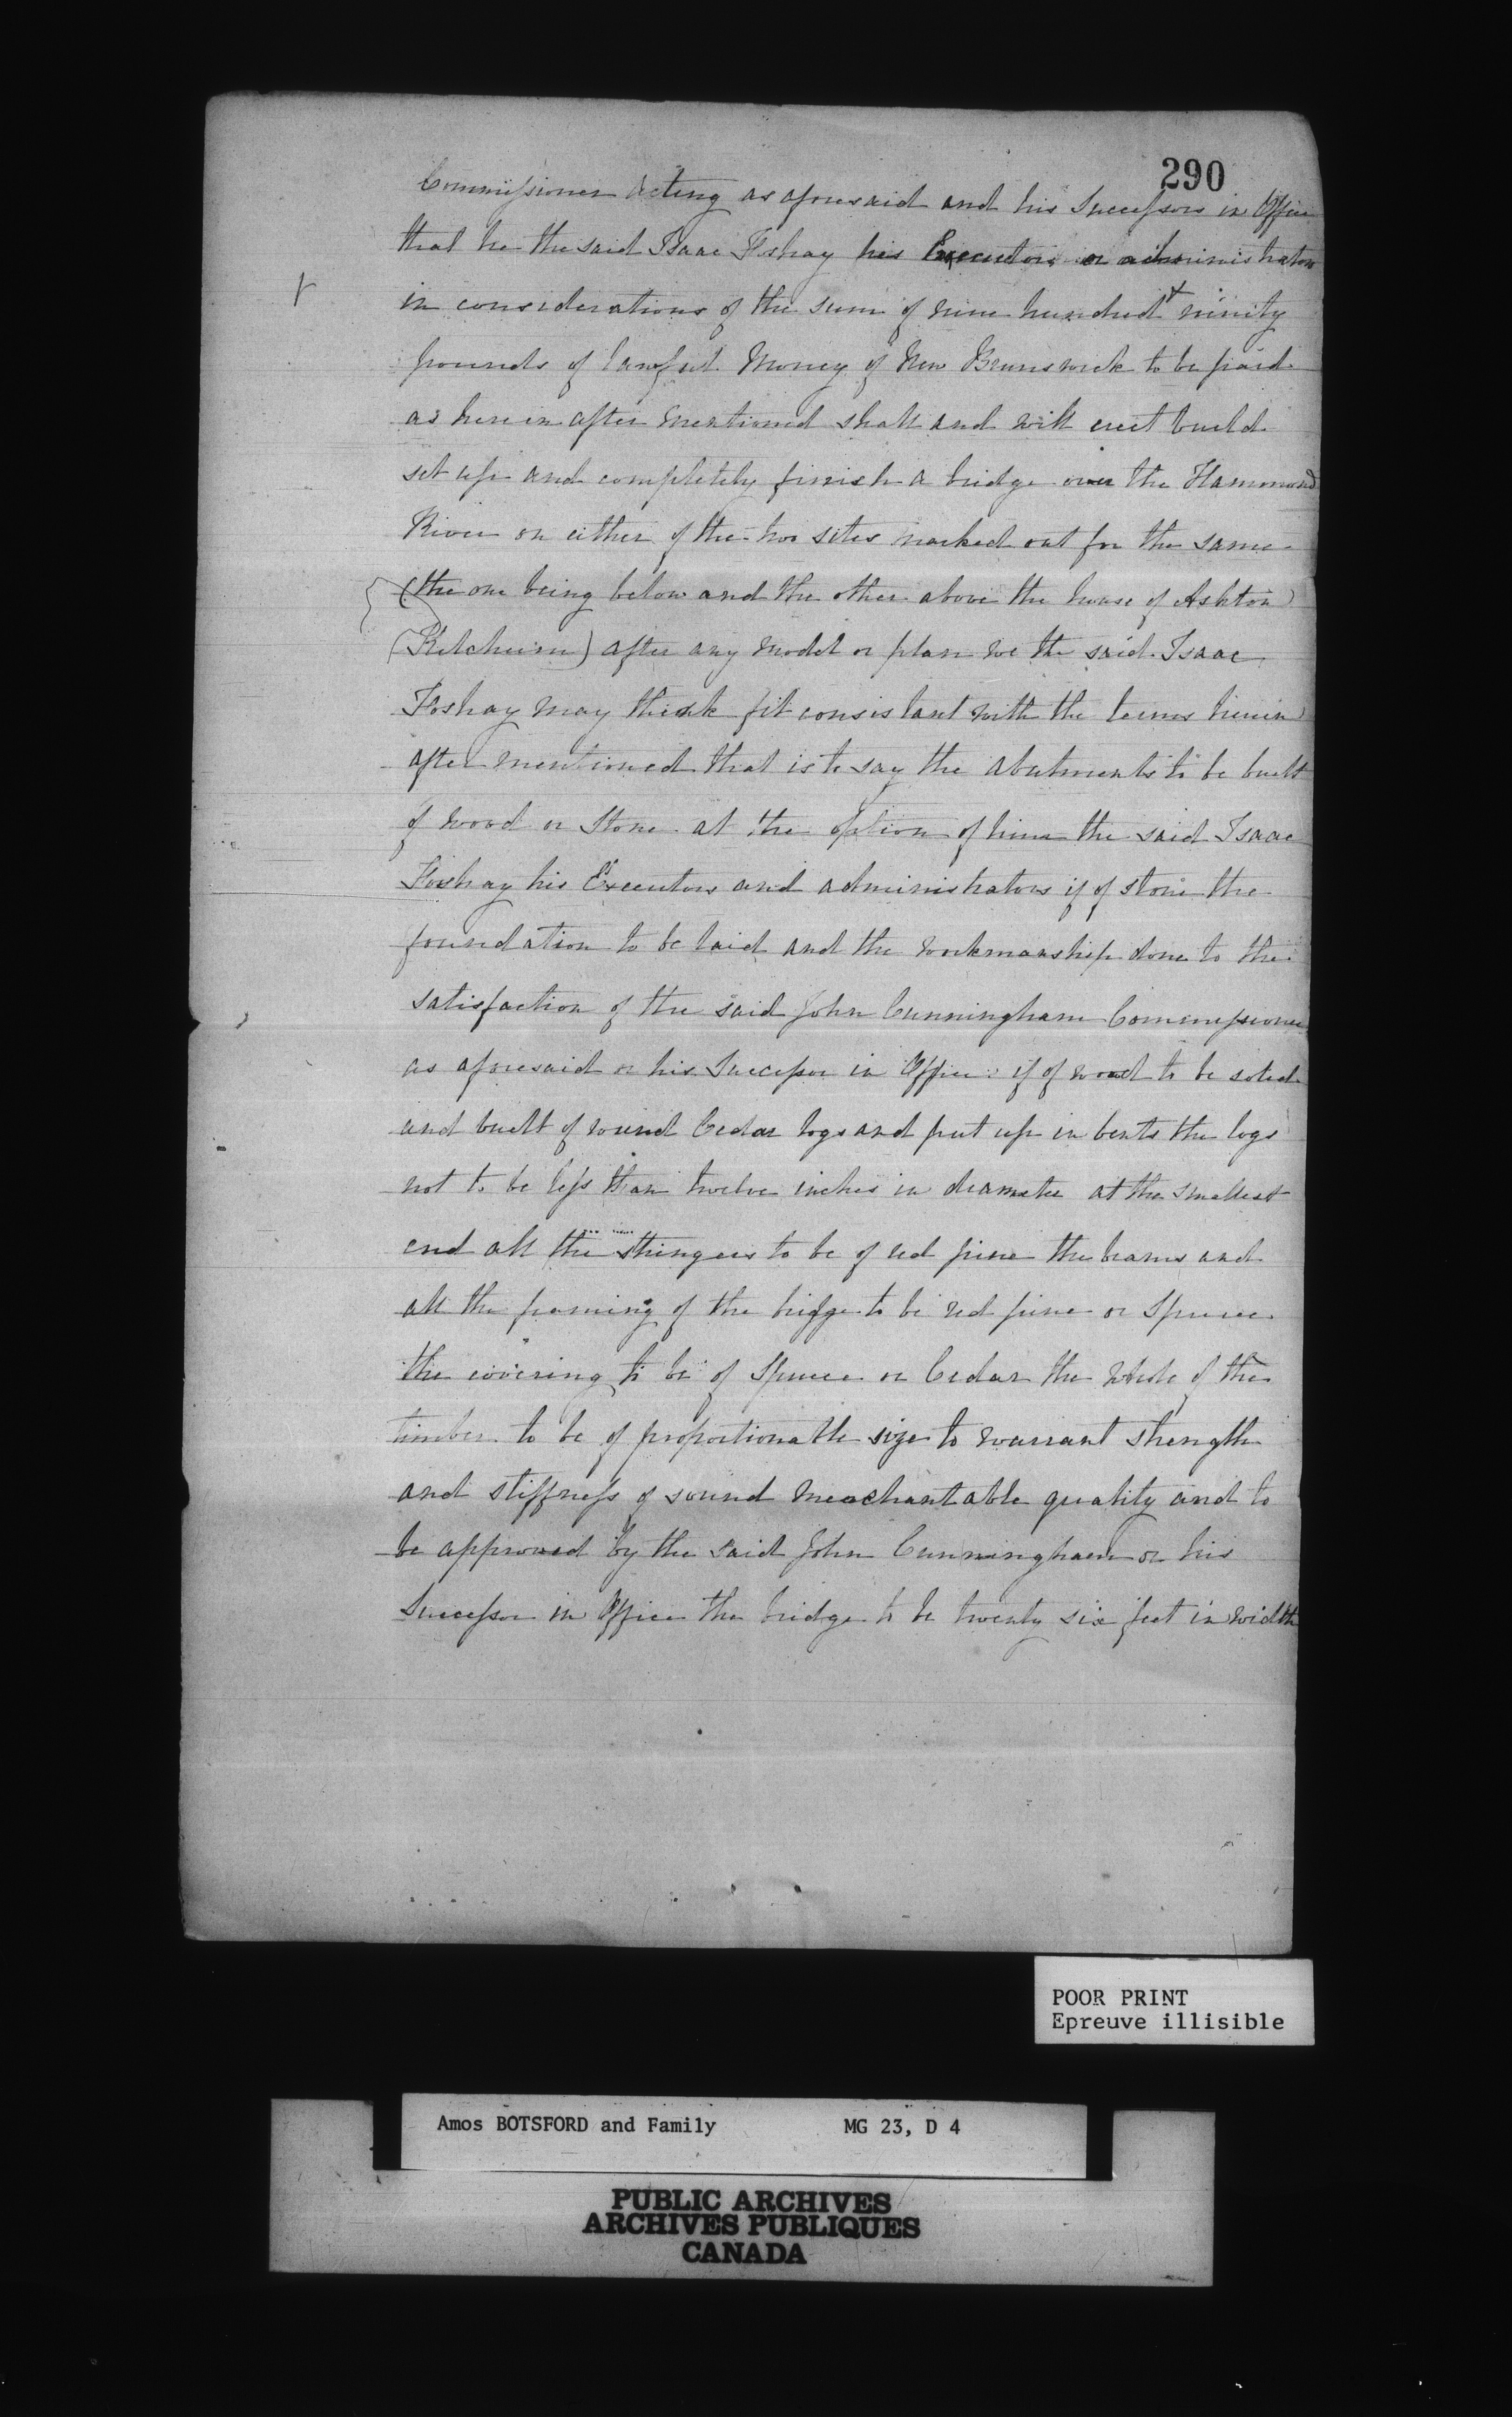 290
Commissioner acting as aforesaid and his Successors in Office
that he the said Isaac Foshay his Executors or administrators
in considerations of the sum of nine hundred + ninity
pounds of lawful Money of New Brunswick to be paid
as herein after mentioned shall and will erect build
set up and completely finish a bridge over the Hammond
River on either of the two sites marked out for the same
(the one being below and the other above the house of Ashton
(Ketchum) after any model or plan we the said Isaac
Foshay may think fit consistant with the terms herein
after mentioned that is to say the abutments to be built
of wood or Stone at the option of him the said Isaac
Foshay his Executors and administrators if of stone the
foundation to be laid and the workmanship done to the
satisfaction of the said John Cunningham Commissioner
as aforesaid or his Successor in Office: if of wood to be
and built of round Cedar logs and put up in bents the logs
not to be less than twelve inches in diameter at the smallest
end all the stringers to be of red pine the beams and
all the framing of the bridge to be red pine or Spruce
the covering to be of Spruce or Cedar the whole of the
timber to be of proportionable size to warrant strength
and stiffness of sound merchantable quality and to
be approved by the said John Cunningham or his
Successor in Office the bridge to be twenty six feet in width
POOR PRINT
Epreuve illisible
Amos BOTSFORD and Family MG 23, D 4
PUBLIC ARCHIVES
ARCHIVES PUBLIQUES
CANADA